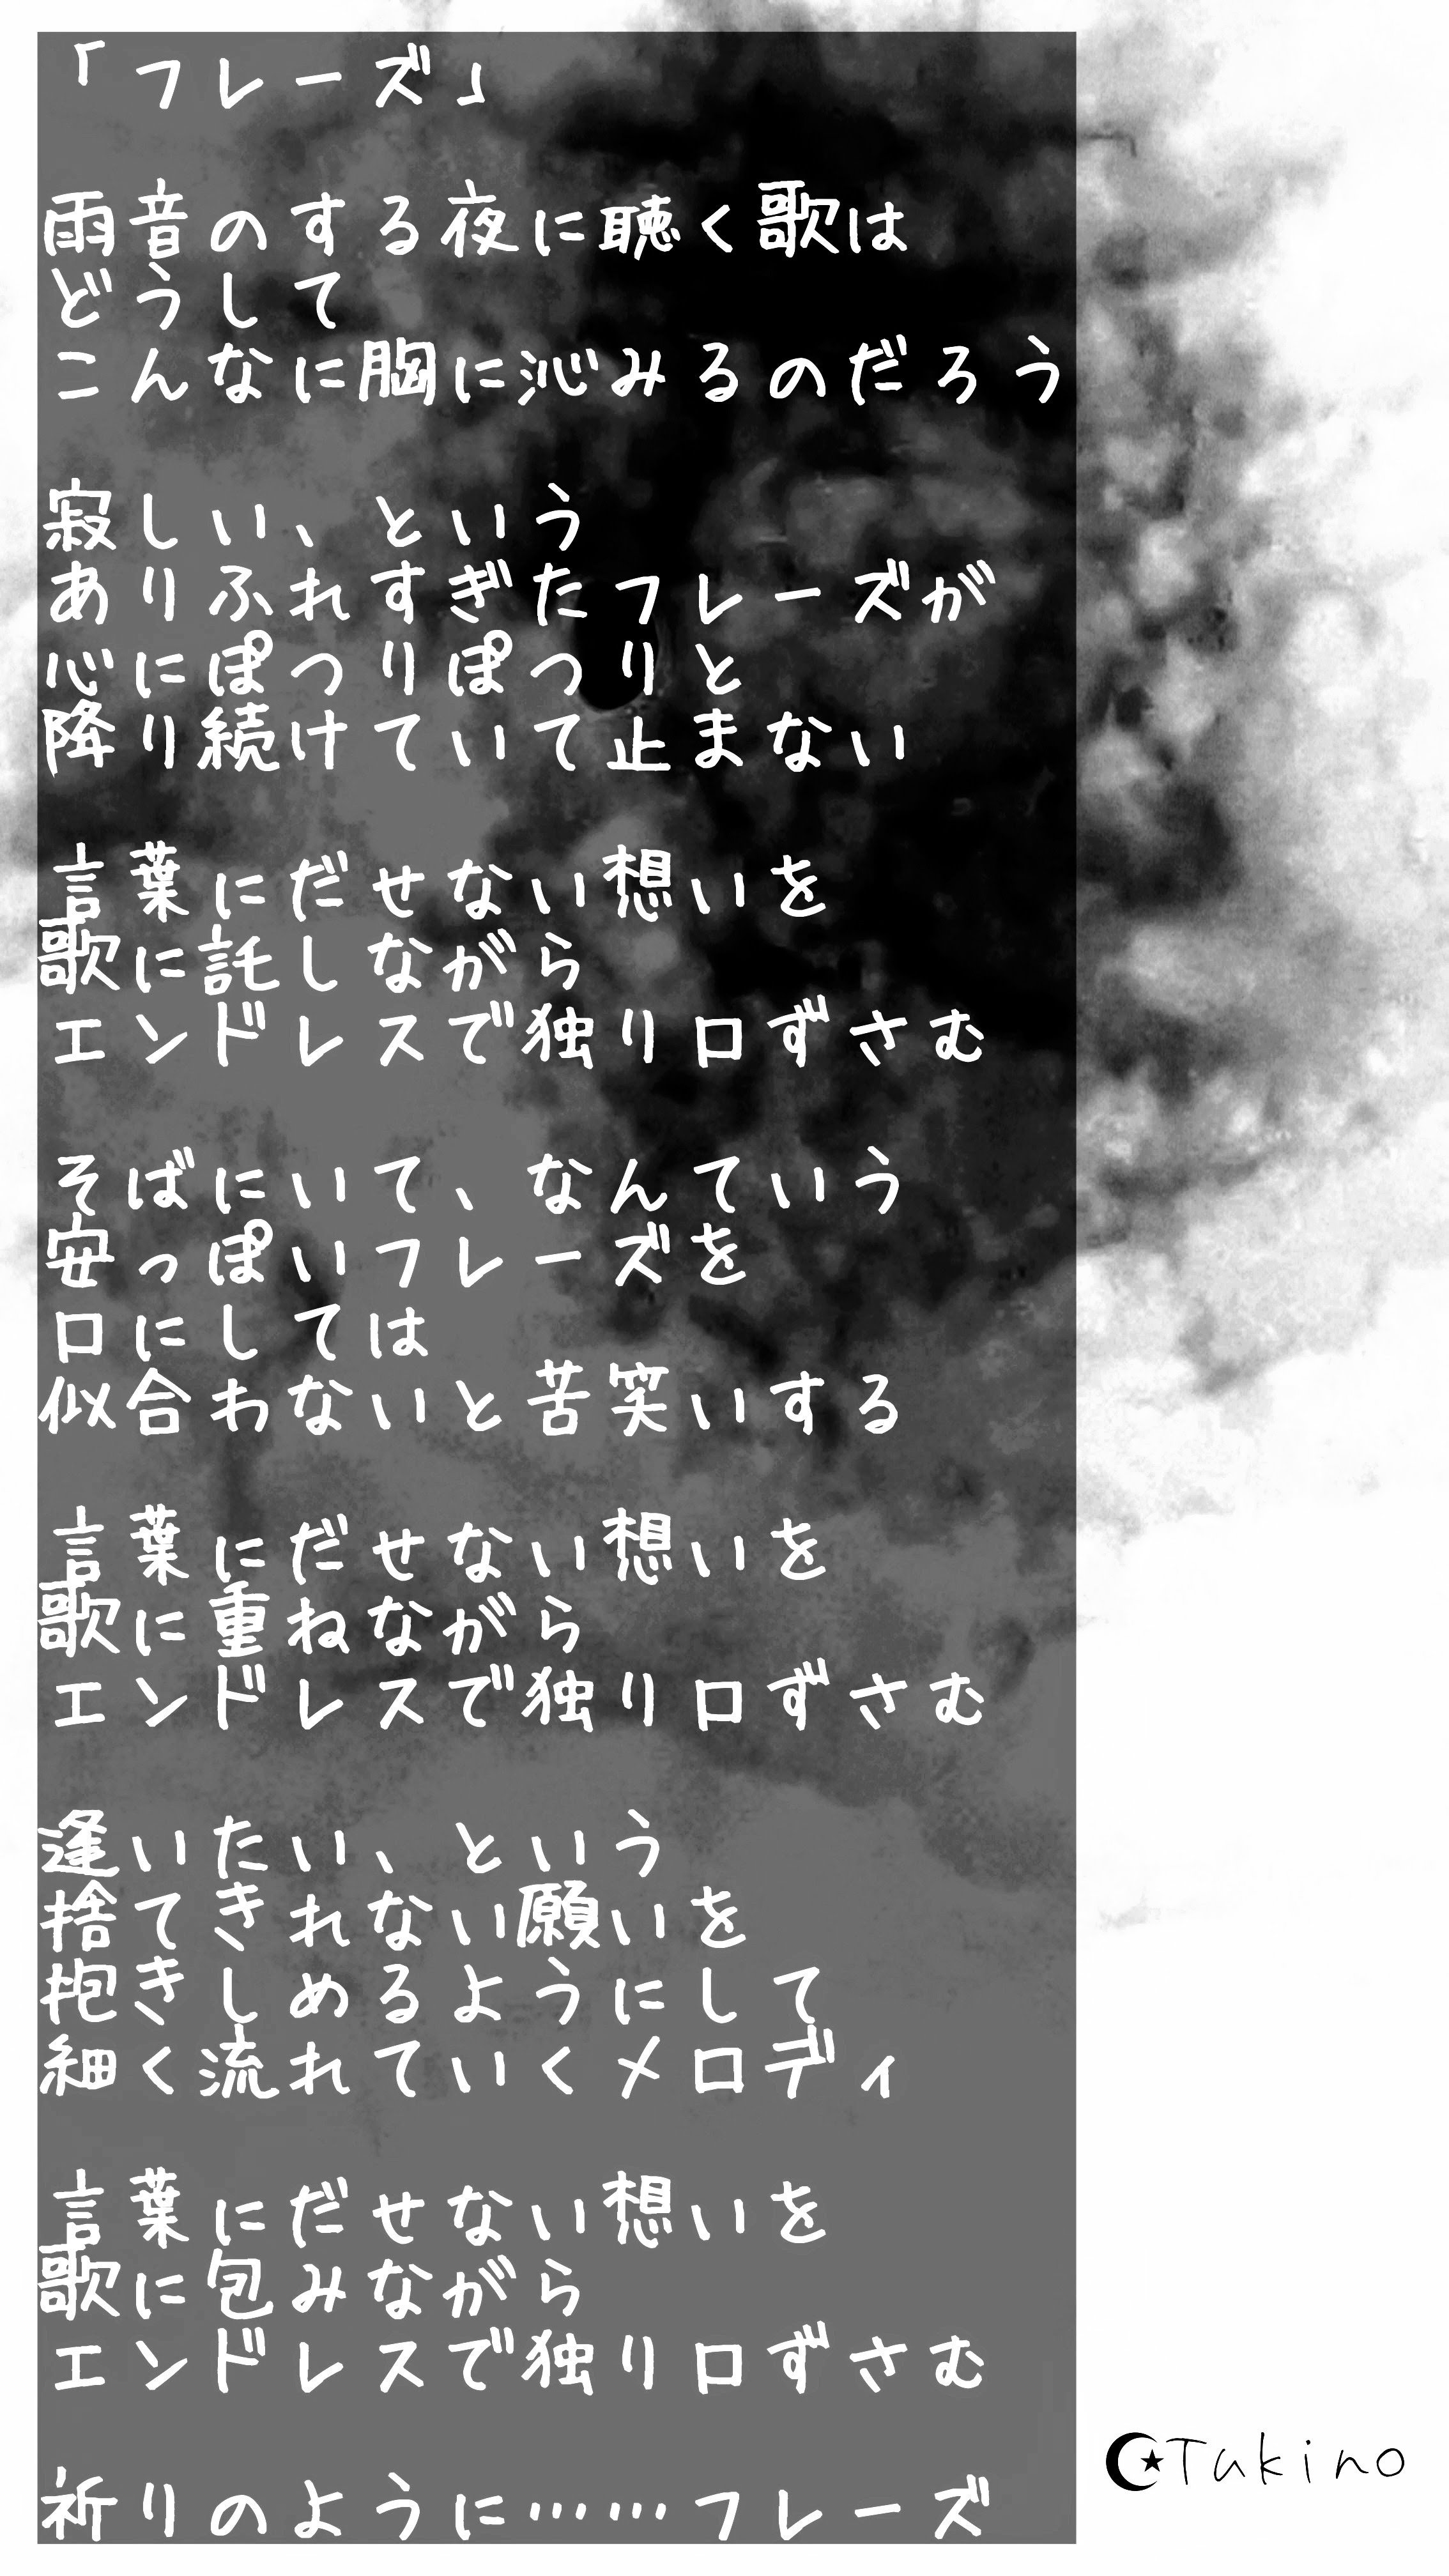 「フレーズ」
雨音のする夜に聴く歌は
どうして
こんなに胸に沁みるのだろう
寂しい、という
ありふれすぎたフレーズが
心にぽつりぽつりと
降り続けていて止まない
言葉にだせない想いを
歌に託しながら
エンドレスで独り口ずさむ
そばにいて、なんていう
安っぽいフレーズを
口にしては
似合わないと苦笑いする
言葉にだせない想いを
歌に重ねながら
エンドレスで独り口ずさむ
逢いたい、という
捨てきれない願いを
抱きしめるようにして
細く流れていくメロディ
言葉にだせない想いを
歌に包みながら
エンドレスで独り口ずさむ
祈りのように……フレーズ
Tukino